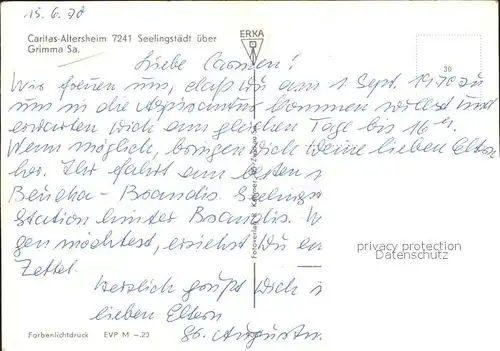 15.6.70
Caritas-Altersheim 7241 Seelingstädt über
Grimma Sa.
ERKA
30
Liebe Carmen!
Wir freuen uns, daß Du am 1. Sept. 1970 zu
uns in die Aspirantur kommen willst und
erwarten Dich am gleichen Tage bis 16 h.
Wenn möglich, bringen Dich Deine lieben Eltern
her. Ihr fahrt am besten
Beucha - Brandis. Seelings
Station hinter Brandis. W
gen möchtest, ersiehst Du
Zettel.
Herzlich grüßt Dich
lieben Eltern
Sr. Augustin
Farbenlichtdruck EVP M -.20
Fotoverlag Kanzler
privacy protection
Datenschutz